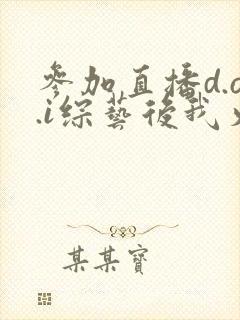 參加直播d.o
.i綜藝後我
某某寶